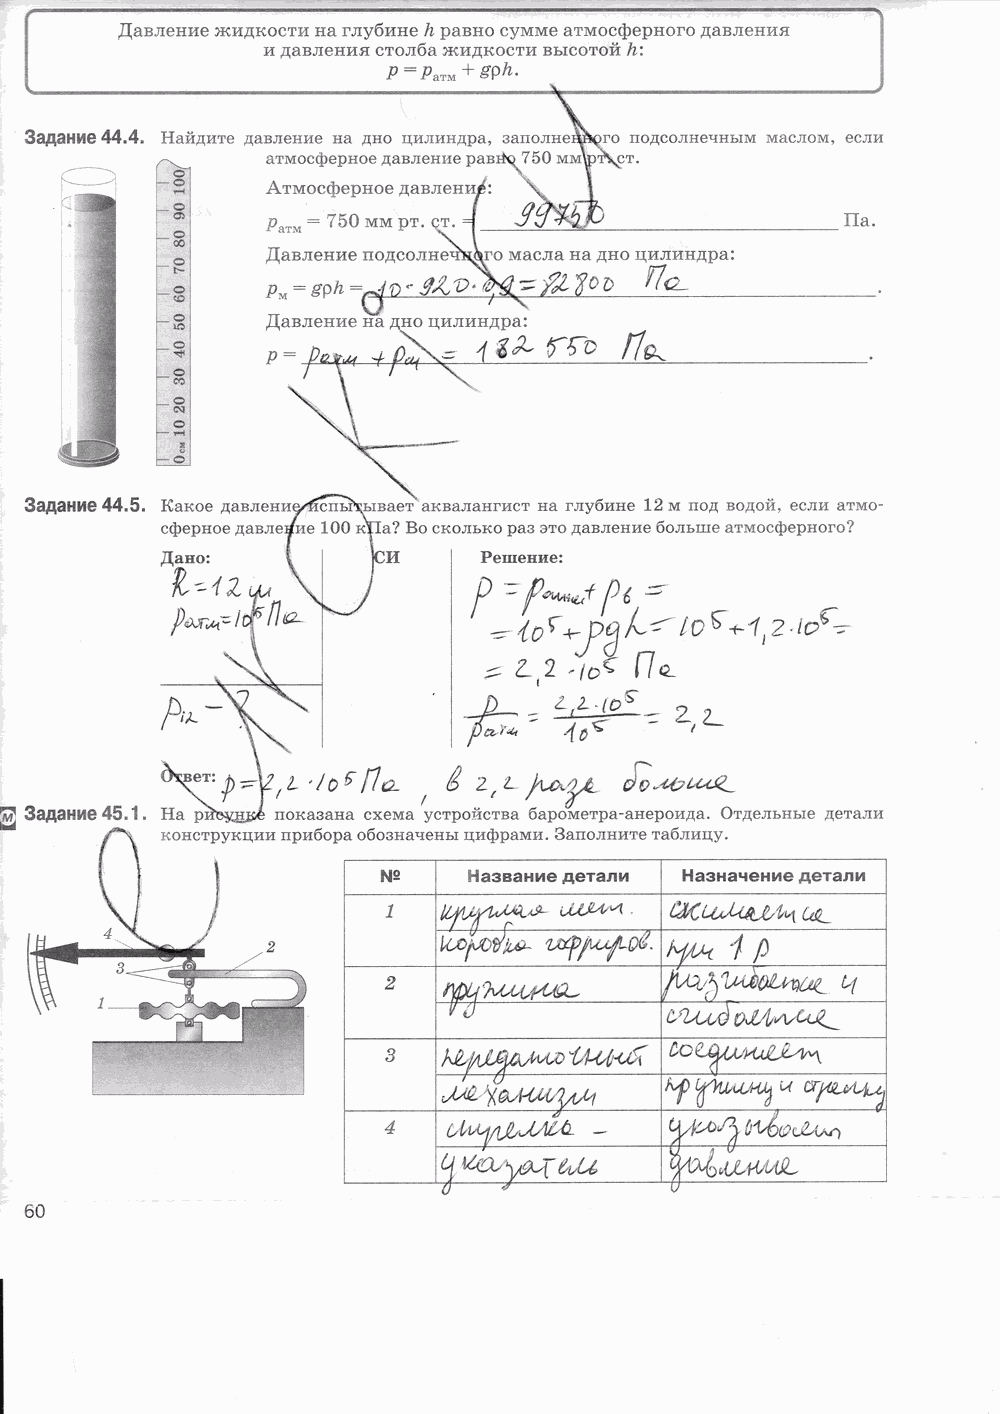 Давление жидкости на глубине h равно сумме атмосферного давления
и давления столба жидкости высотой h:
p = pатм + gρh.
Задание 44.4. Найдите давление на дно цилиндра, заполненного подсолнечным маслом, если
атмосферное давление равно 750 мм рт. ст.
Атмосферное давление:
pатм = 750 мм рт. ст. = 99750 Па.
Давление подсолнечного масла на дно цилиндра:
pм = gρh = 10·920·0,9 = 82800 Па.
Давление на дно цилиндра:
p = pатм + pм = 182 550 Па.
0 см 10 20 30 40 50 60 70 80 90 100
Задание 44.5. Какое давление испытывает аквалангист на глубине 12 м под водой, если атмо-
сферное давление 100 кПа? Во сколько раз это давление больше атмосферного?
Дано: СИ Решение:
h = 12 м
pатм = 10⁵ Па
p12 - ?
p = pатм + pв =
= 10⁵ + ρgh = 10⁵ + 1,2·10⁵ =
= 2,2·10⁵ Па
p/pатм = 2,2·10⁵/10⁵ = 2,2
Ответ: p = 2,2·10⁵ Па, в 2,2 раза больше
М Задание 45.1. На рисунке показана схема устройства барометра-анероида. Отдельные детали
конструкции прибора обозначены цифрами. Заполните таблицу.
4
2
3
1
№ Название детали Назначение детали
1 круглая мет. сжимается
коробка гофриров. при ↑ p
2 пружина разгибается и
сгибается
3 передаточный соединяет
механизм пружину и стрелку
4 стрелка – указывает
указатель давление
60